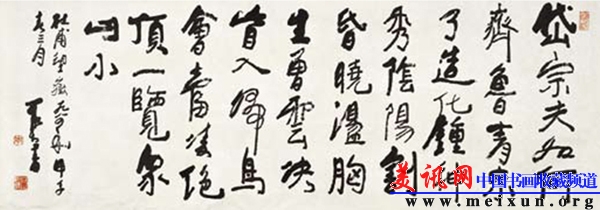 岱宗夫如何
齊魯青未
了造化鍾神
秀陰陽割
昏曉盪胸
生曾雲决
眥入歸鳥
會當凌絕
頂一覽眾
山小
杜甫望嶽 甲子
春三月 書
美讯网 中国书画收藏频道
www.meixun.org